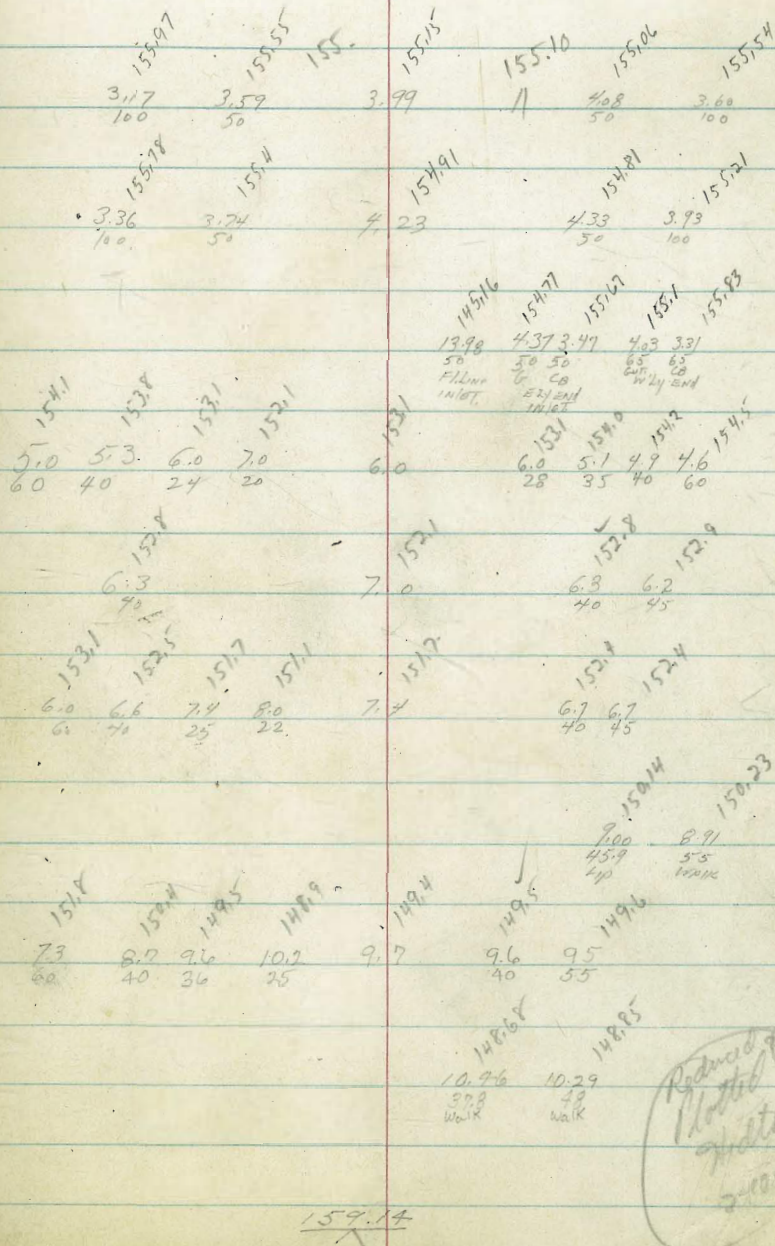 155.97 155.55 155. 155.15 155.10 155.06 155.54
3.17 3.59 3.99 4.08 3.60
100 50 50 100
155.78 155.4 154.91 154.81 155.21
3.36 3.74 4.23 4.33 3.93
100 50 50 100
145.16 154.77 155.67 155.1 155.83
13.98 4.37 3.47 4.03 3.31
50 50 50 65 65
Fl. Line G CB Gutt. CB
INLET. Ely END W'ly End
INLET
154.1 153.8 153.1 152.1 153.1 153.1 154.0 154.2 154.5
5.0 5.3 6.0 7.0 6.0 6.0 5.1 4.9 4.6
60 40 24 20 28 35 40 60
152.8 152.1 152.8 152.9
6.3 7.0 6.3 6.2
40 40 45
153.1 152.5 151.7 151.1 151.7 152.4 152.4
6.0 6.6 7.4 8.0 7.4 6.7 6.7
60 40 25 22 40 45
150.14 150.23
9.00 8.91
45.9 55
Lip Walk
151.8 150.4 149.5 148.9 149.4 149.5 149.6
7.3 8.7 9.6 10.2 9.7 9.6 9.5
60 40 36 25 40 55
148.68 148.85
10.46 10.29
37.8 48
Walk Walk
Reduced &
Plotted
159.14